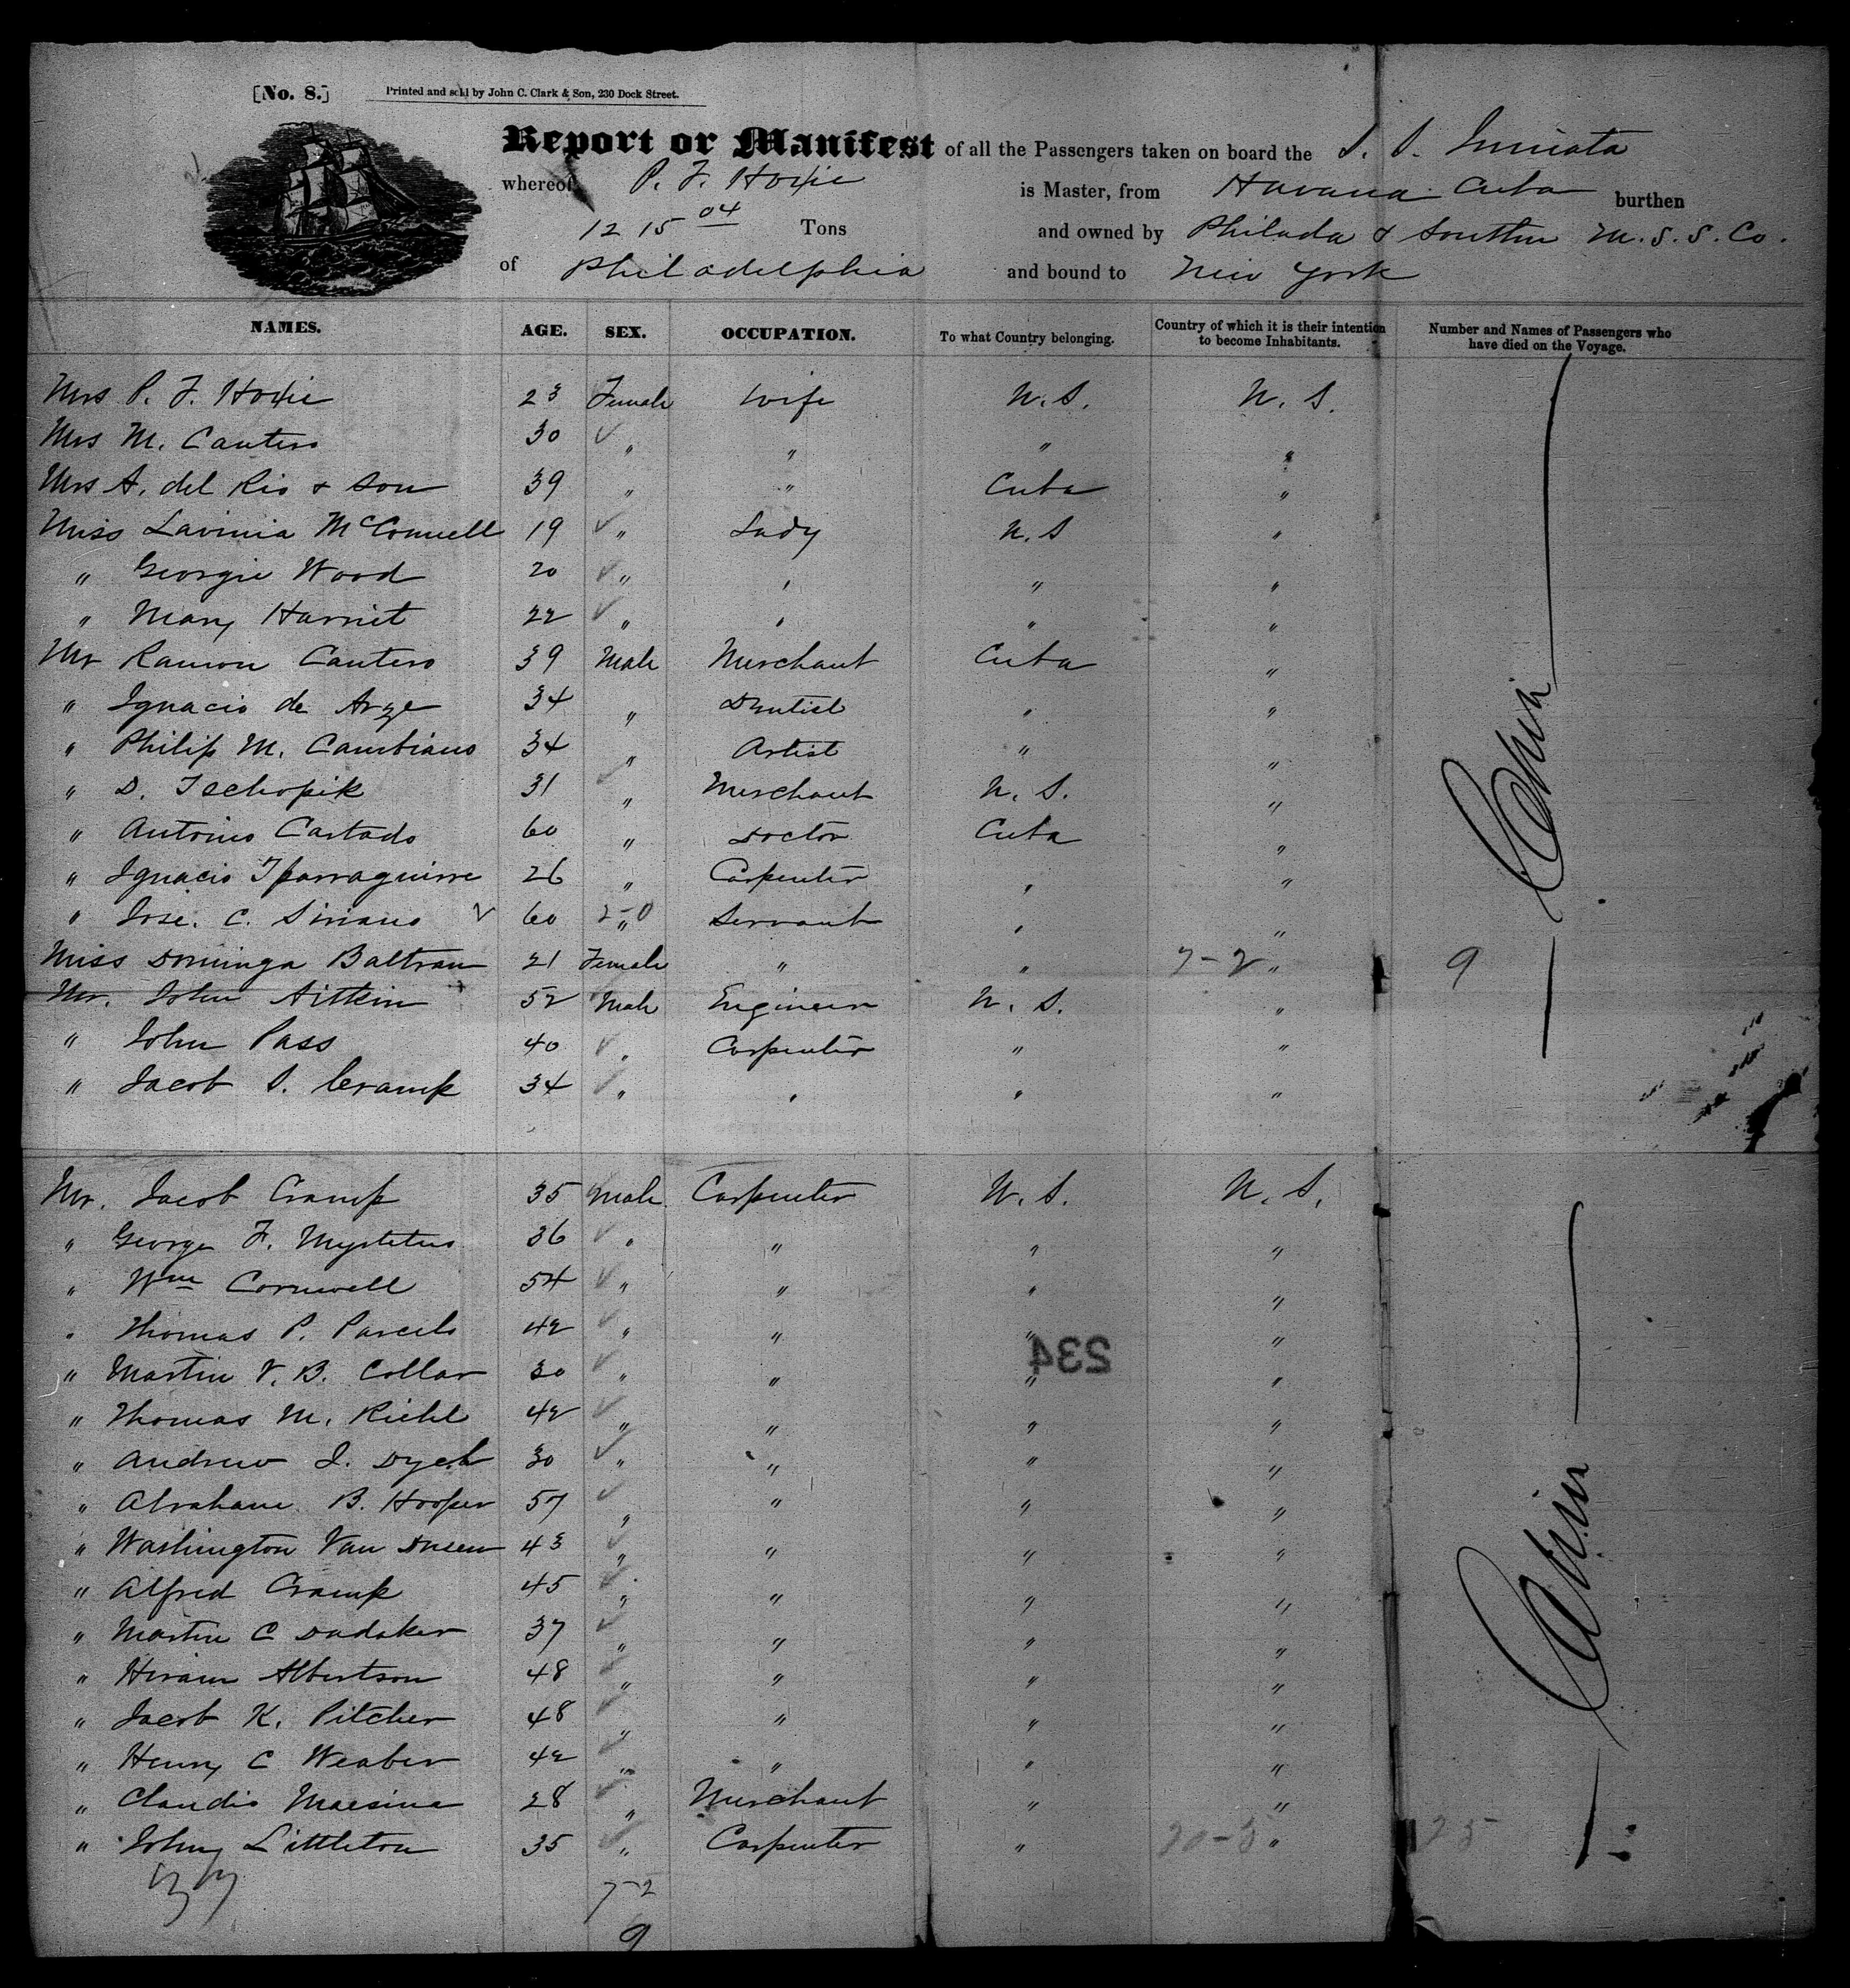 [No. 8.]
Printed and sold by John C. Clark & Son, 230 Dock Street.
Report or Manifest of all the Passengers taken on board the S. S. Juniata
whereof P. F. Hoxie is Master, from Havana Cuba burthen
1215 04 Tons and owned by Philada & Southern M. S. S. Co.
of Philadelphia and bound to New York
NAMES. AGE. SEX. OCCUPATION. To what Country belonging. Country of which it is their intention to become Inhabitants. Number and Names of Passengers who have died on the Voyage.
Mrs P. F. Hoxie 23 Female Wife U. S. U. S.
Mrs M. Cantero 30 " " " "
Mrs A. del Rio & Son 39 " " Cuba "
Miss Lavinia McConnell 19 " Lady U. S "
" Georgie Wood 20 " " " "
" Mary Harriet 22 " " " "
Mr Ramon Cantero 39 Male Merchant Cuba "
" Ignacio de Arze 34 " Dentist " "
" Philip M. Cambiano 34 " Artist " "
" D. Tschopik 31 " Merchant U. S. "
" Antonio Castado 60 " Doctor Cuba "
" Ignacio Iparraguirre 26 " Carpenter " "
" Jose. C. Siriano 60 2-0 " Servant " "
Miss Dominga Baltran 21 Female " " 7-2 " 9
Mr. John Aitkin 52 Male Engineer U. S. "
" John Pass 40 " Carpenter " "
" Jacob S. Cramp 34 " " " "
Cabin
Mr. Jacob Cramp 35 Male Carpenter U. S. U. S.
" George F. Mysteteus 36 " " " "
" Wm Cornwell 54 " " " "
" Thomas P. Parcels 42 " " " "
234
" Martin V. B. Collar 30 " " " "
" Thomas M. Riehl 42 " " " "
" Andrew J. Dych 30 " " " "
" Abraham B. Hooper 57 " " " "
" Washington Van Dusen 43 " " " "
" Alfred Cramp 45 " " " "
" Martin C Dudaker 37 " " " "
" Hiram Albertson 48 " " " "
" Jacob K. Pitcher 48 " " " "
" Henry C Weaber 42 " " " "
" Claudio Maesina 28 " Merchant " "
" John Littleton 35 " Carpenter " 20-5 " 25
Cabin
33
7-2
9